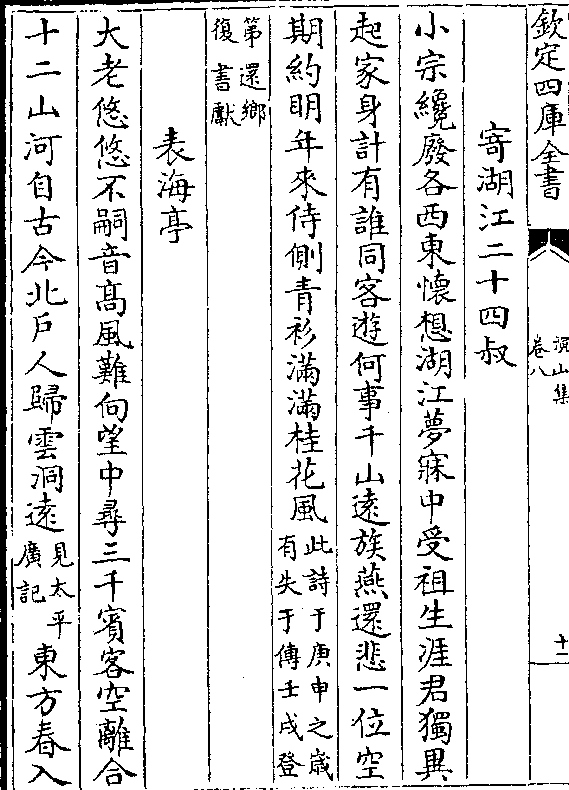 欽定四庫全書
卷八
十二
寄湖江二十四叔
小宗纔廢各西東懷想湖江夢寐中受祖生涯君獨異
起家身計有誰同客遊何事千山遠族燕還悲一位空
期約明年來侍側青衫滿滿桂花風此詩于庚申之歳有失于傳壬戌登
第還鄉復書獻
表海亭
大老悠悠不嗣音髙風難向望中尋三千賓客空離合
十二山河自古今北戶人歸雲洞逺見太平廣記東方春入